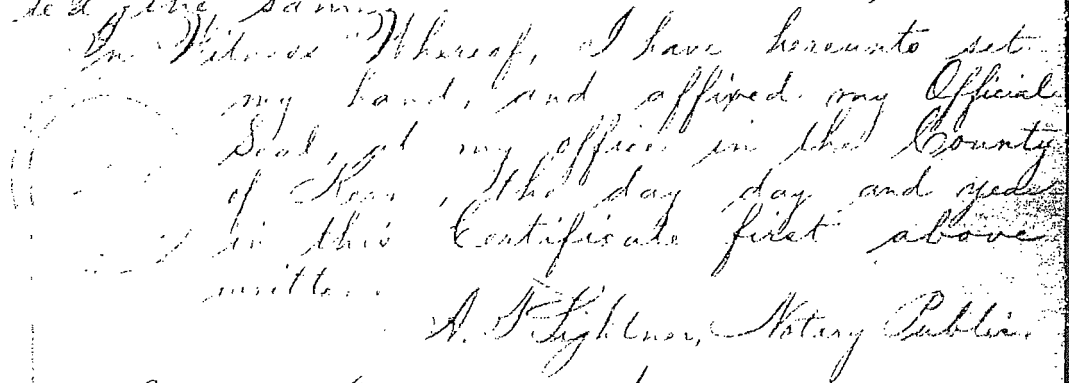 ted the same.
In Witness Whereof, I have hereunto set
my hand, and affixed my Official
Seal, at my office in the County
of Kern, the day day and year
in this Certificate first above
written.
A. T. Lightner, Notary Public.